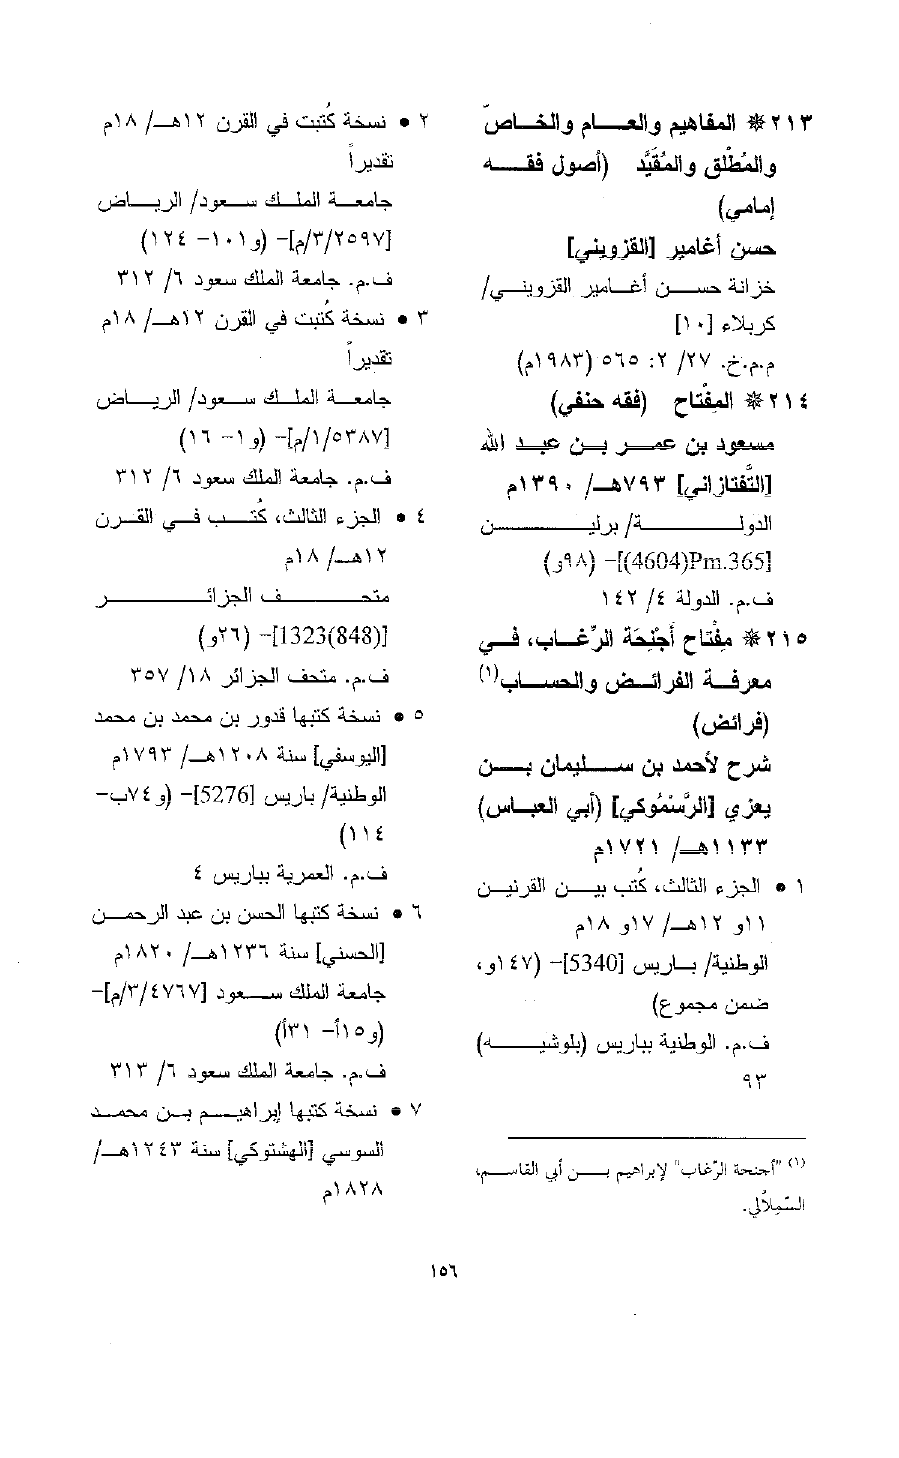 ٢١٣ ❋ المفاهيم والعام والخاصّ
والمُطْلق والمُقَيَّد (أصول فقه
إمامي)
حسن أغامير [القزويني]
خزانة حسن أغامير القزويني/
كربلاء [١٠]
م.م.خ. ٢٧/ ٢: ٥٦٥ (١٩٨٣م)
٢١٤ ❋ المِفْتاح (فقه حنفي)
مسعود بن عمر بن عبد الله
[التَّفتازاني] ٧٩٣هـ/ ١٣٩٠م
الدولة/ برلين
[Pm.365(4604)]- (٩٨و)
ف.م. الدولة ٤/ ١٤٢
٢١٥ ❋ مِفْتاح أَجْنِحَة الرِّغاب، في
معرفة الفرائض والحساب(١)
(فرائض)
شرح لأحمد بن سليمان بن
يعزي [الرَّسْمُوكي] (أبي العباس)
١١٣٣هـ/ ١٧٢١م
١ • الجزء الثالث، كُتب بين القرنين
١١و ١٢هـ/ ١٧و ١٨م
الوطنية/ باريس [5340]- (١٤٧و،
ضمن مجموع)
ف.م. الوطنية بباريس (بلوشيه)
٩٣
(١) "أجنحة الرّغاب" لإبراهيم بن أبي القاسم،
السّمِلاُلي.
٢ • نسخة كُتبت في القرن ١٢هـ/ ١٨م
تقديراً
جامعة الملك سعود/ الرياض
[٢٥٩٧/٣/م]- (و١٠١- ١٢٤)
ف.م. جامعة الملك سعود ٦/ ٣١٢
٣ • نسخة كُتبت في القرن ١٢هـ/ ١٨م
تقديراً
جامعة الملك سعود/ الرياض
[٥٣٨٧/١/م]- (و١- ١٦)
ف.م. جامعة الملك سعود ٦/ ٣١٢
٤ • الجزء الثالث، كُتب في القرن
١٢هـ/ ١٨م
متحف الجزائر
[1323(848)]- (٢٦و)
ف.م. متحف الجزائر ١٨/ ٣٥٧
٥ • نسخة كتبها قدور بن محمد بن محمد
[اليوسفي] سنة ١٢٠٨هـ/ ١٧٩٣م
الوطنية/ باريس [5276]- (و٧٤ب-
١١٤)
ف.م. العمرية بباريس ٤
٦ • نسخة كتبها الحسن بن عبد الرحمن
[الحسني] سنة ١٢٣٦هـ/ ١٨٢٠م
جامعة الملك سعود [٤٧٦٧/٣/م]-
(و١٥أ- ٣١أ)
ف.م. جامعة الملك سعود ٦/ ٣١٣
٧ • نسخة كتبها إبراهيم بن محمد
السوسي [الهشتوكي] سنة ١٢٤٣هـ/
١٨٢٨م
١٥٦